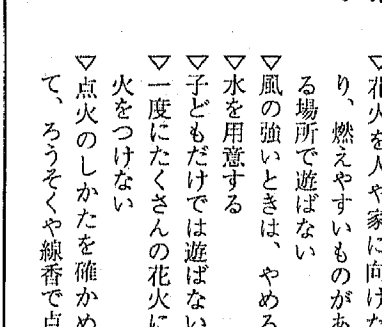 ▽花火を人や家に向けな
り、燃えやすいものがあ
る場所で遊ばない
▽風の強いときは、やめる
水を用意する
▽子どもだけでは遊ばない
▽一度にたくさんの花火に
火をつけない
▽点火のしかたを確かめ
て、ろうそくや線香で点